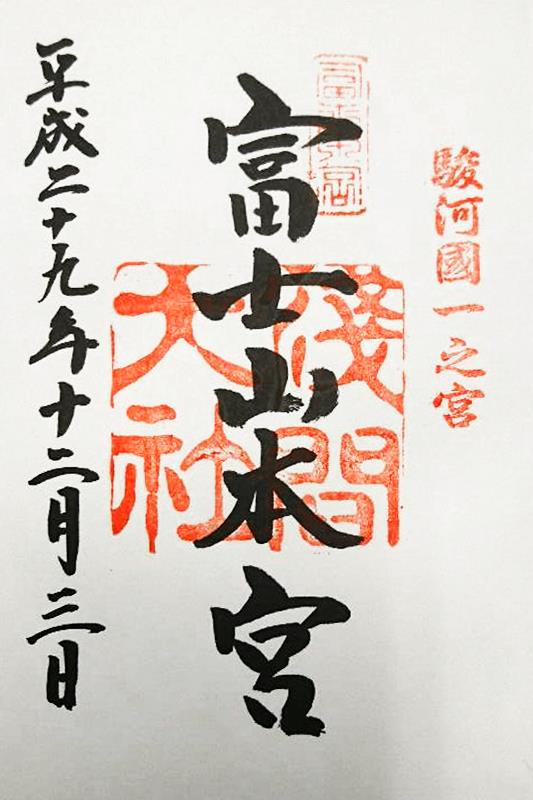 駿河國一之宮
富士山本宮
淺間大社
平成二十九年十二月三日